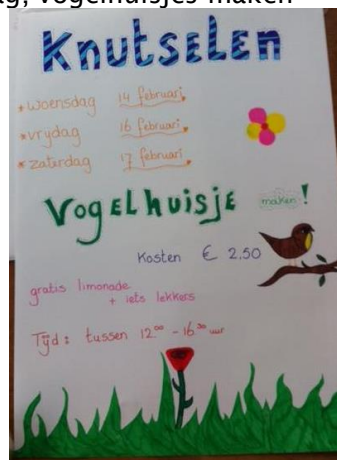 ag, vogelhuisjes maken
Knutselen
* woensdag 14 februari
* vrydag 16 februari
* zaterdag 17 februari
Vogelhuisje maken!
Kosten € 2,50
gratis limonade
+ iets lekkers
Tijd: tussen 12⁰⁰ - 16³⁰ uur